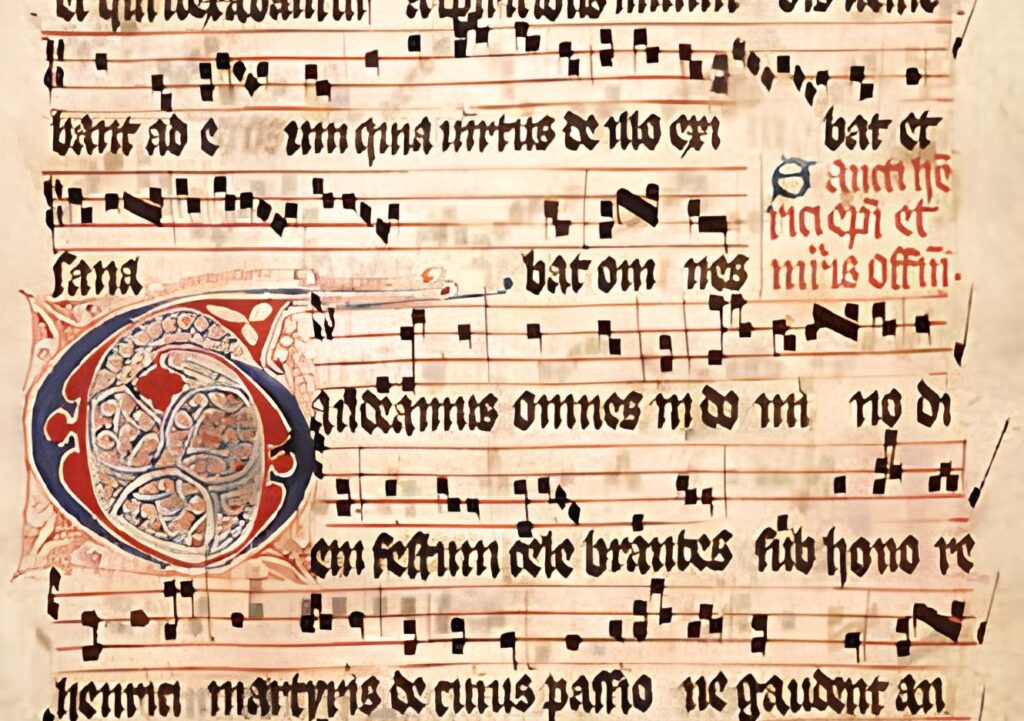 et qui vexabantur a spiritibus
bant ad e um quia uirtus de illo exi bat et
sana bat om nes
Sancti hē
rici ep̄i et
mr̄is offm̄.
Gaudeamus omnes in do mi no di
em festum cele brantes sub hono re
henrici martyris de cuius passio ne gaudent an